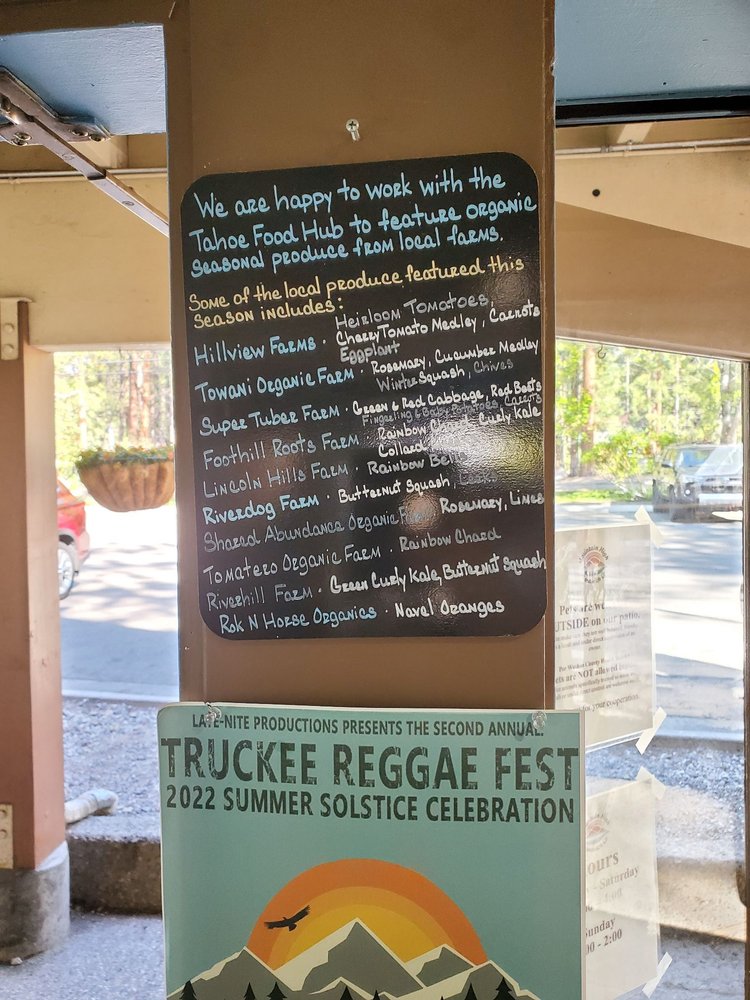 We are happy to work with the
Tahoe Food Hub to feature organic
seasonal produce from local farms.
Some of the local produce featured this
season includes:
Hillview Farms · Heirloom Tomatoes,
Cherry Tomato Medley, Carrots
Eggplant
Towani Organic Farm · Rosemary, Cucumber Medley
Winter Squash, Chives
Super Tuber Farm · Green & Red Cabbage, Red Beets
Fingerling & Baby Potatoes, Carrots
Foothill Roots Farm Rainbow Chard, Curly Kale
Collard
Lincoln Hills Farm · Rainbow
Riverdog Farm · Butternut Squash,
Shared Abundance Organic Farm Rosemary, Limes
Tomatero Organic Farm · Rainbow Chard
Riverhill Farm · Green Curly Kale, Butternut Squash
Rok N Horse Organics · Navel Oranges
LATE-NITE PRODUCTIONS PRESENTS THE SECOND ANNUAL:
TRUCKEE REGGAE FEST
2022 SUMMER SOLSTICE CELEBRATION
Pets are
OUTSIDE on our patio.
owner.
are NOT allowed
your cooperation.
ours
- Saturday
00 - 2:00